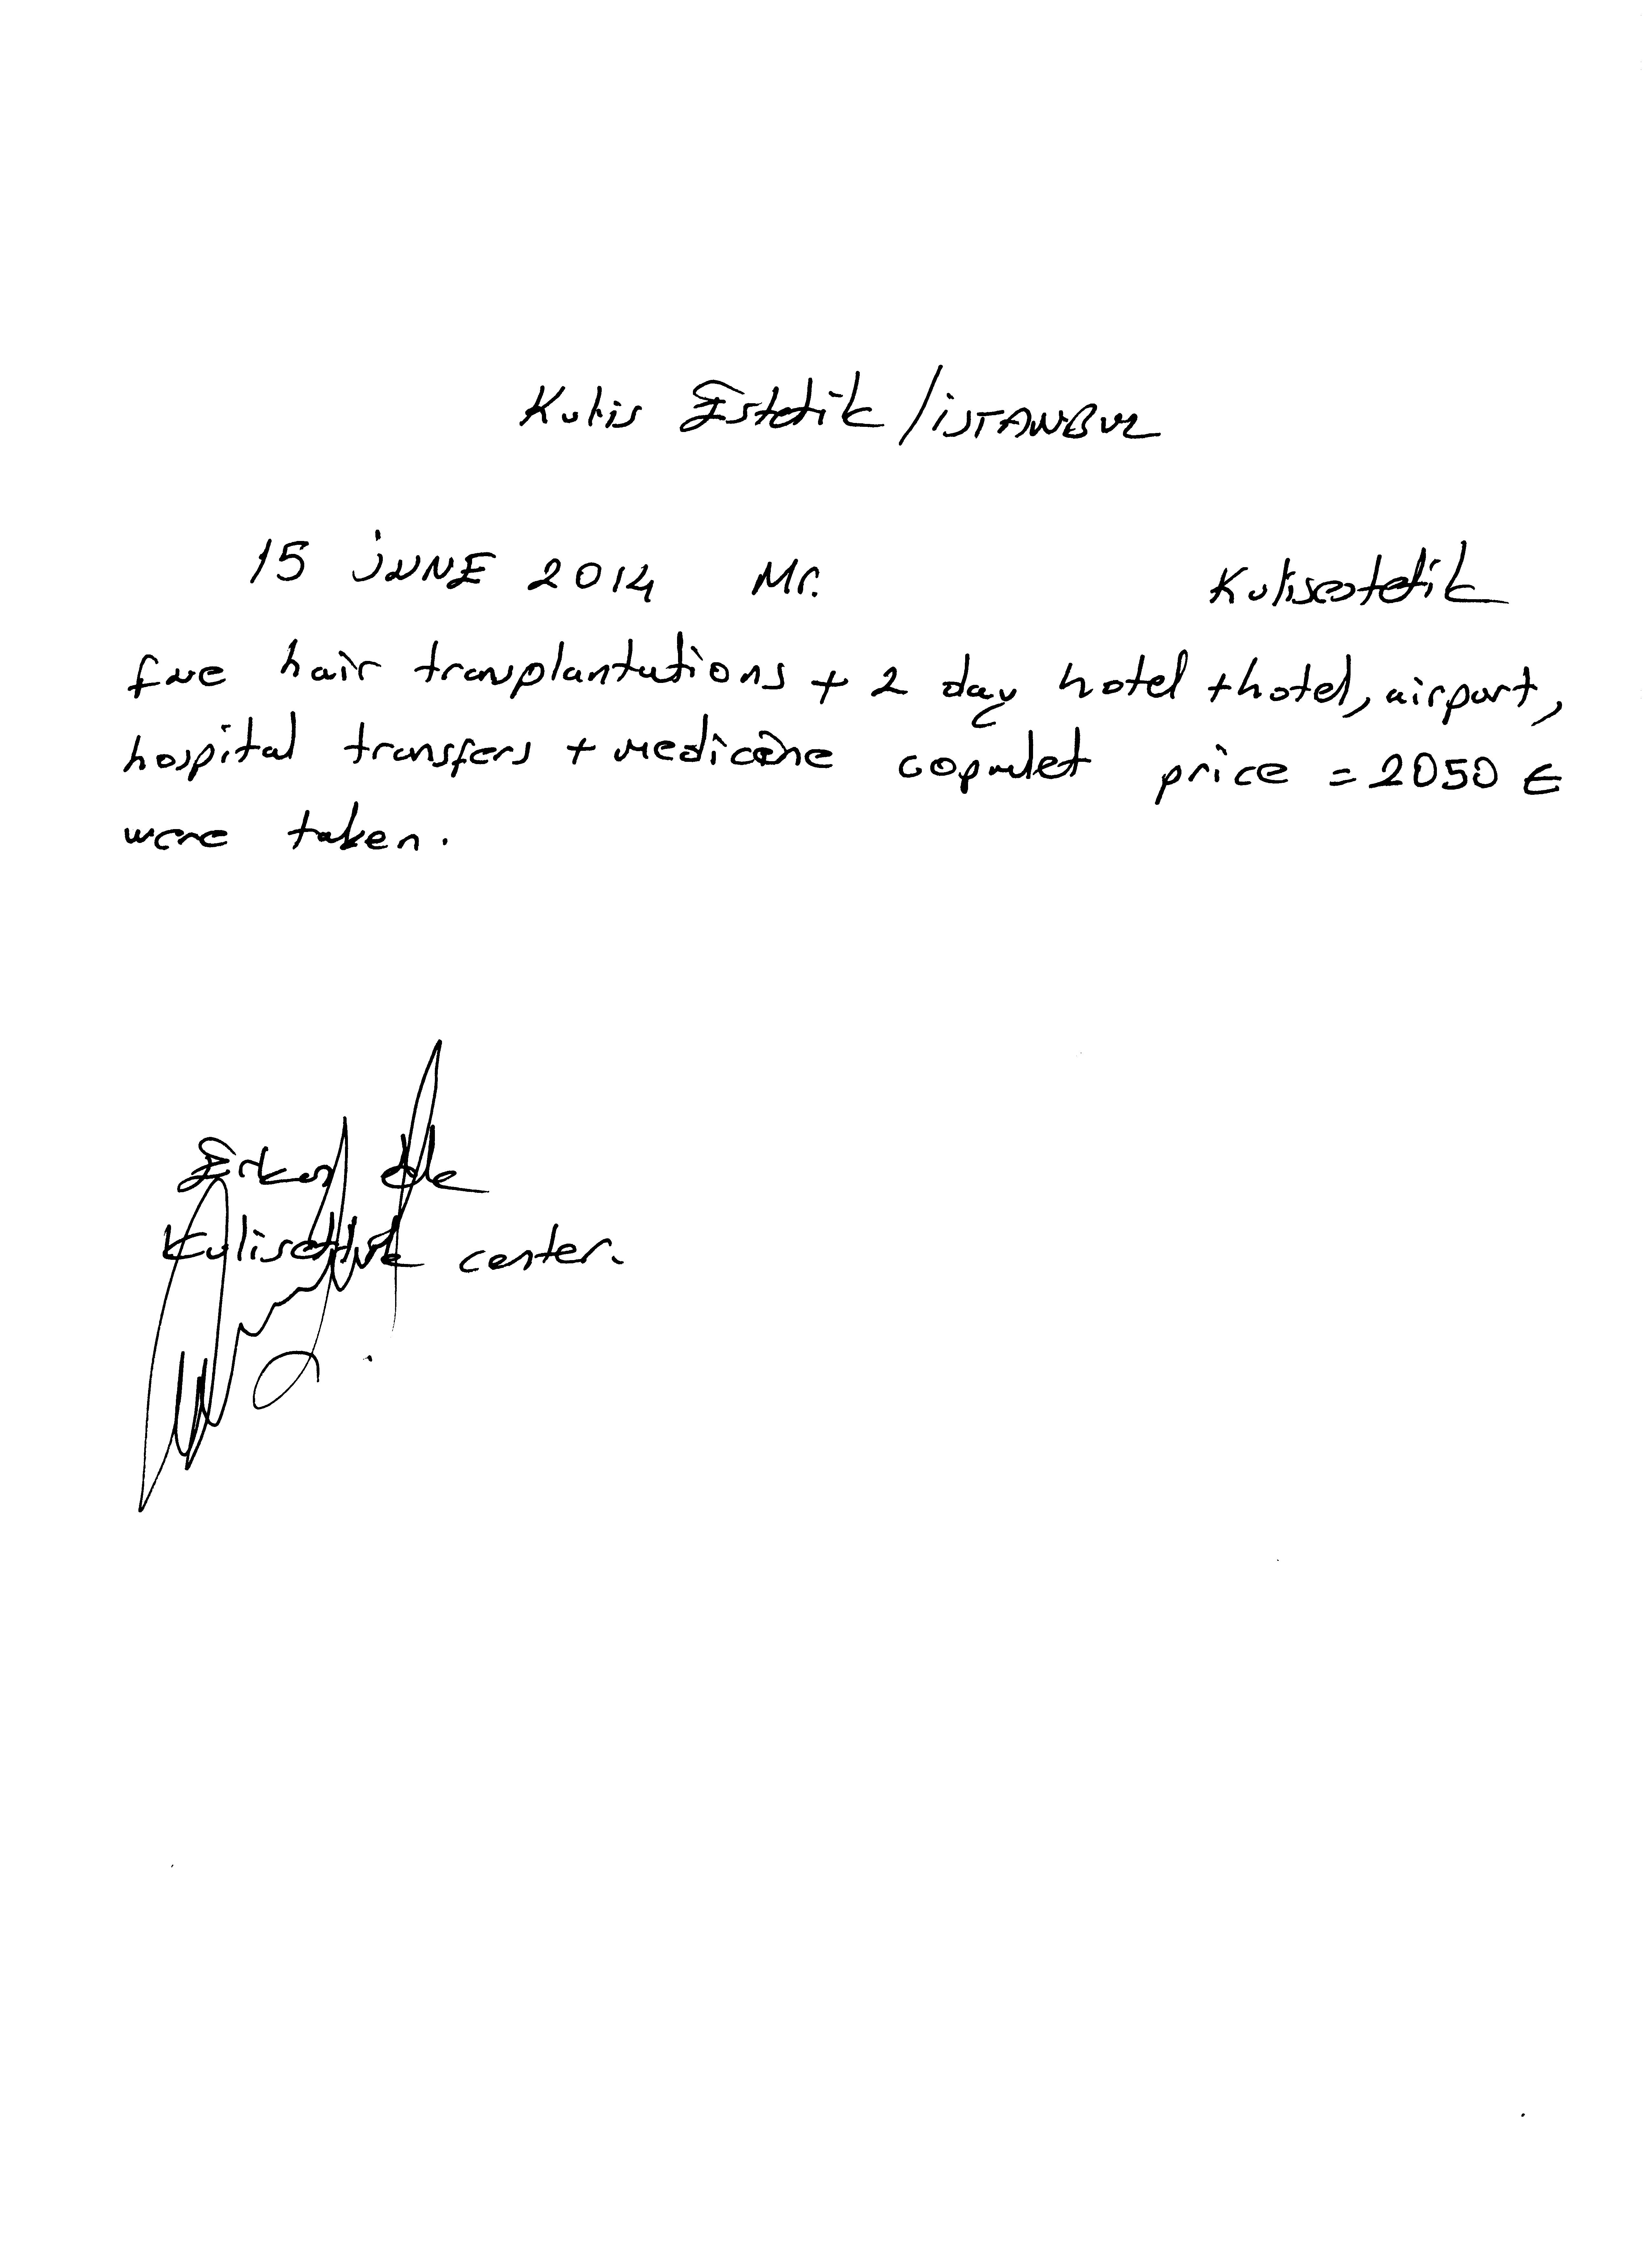 Kulis Estetik / İSTANBUL
15 JUNE 2014 Mr. Kulisestetik
fue hair transplantutions + 2 day hotel + hotel, airport,
hospital transfers + medicine copmlet price = 2050 €
were taken.
Erkan
Kulisestetik center.